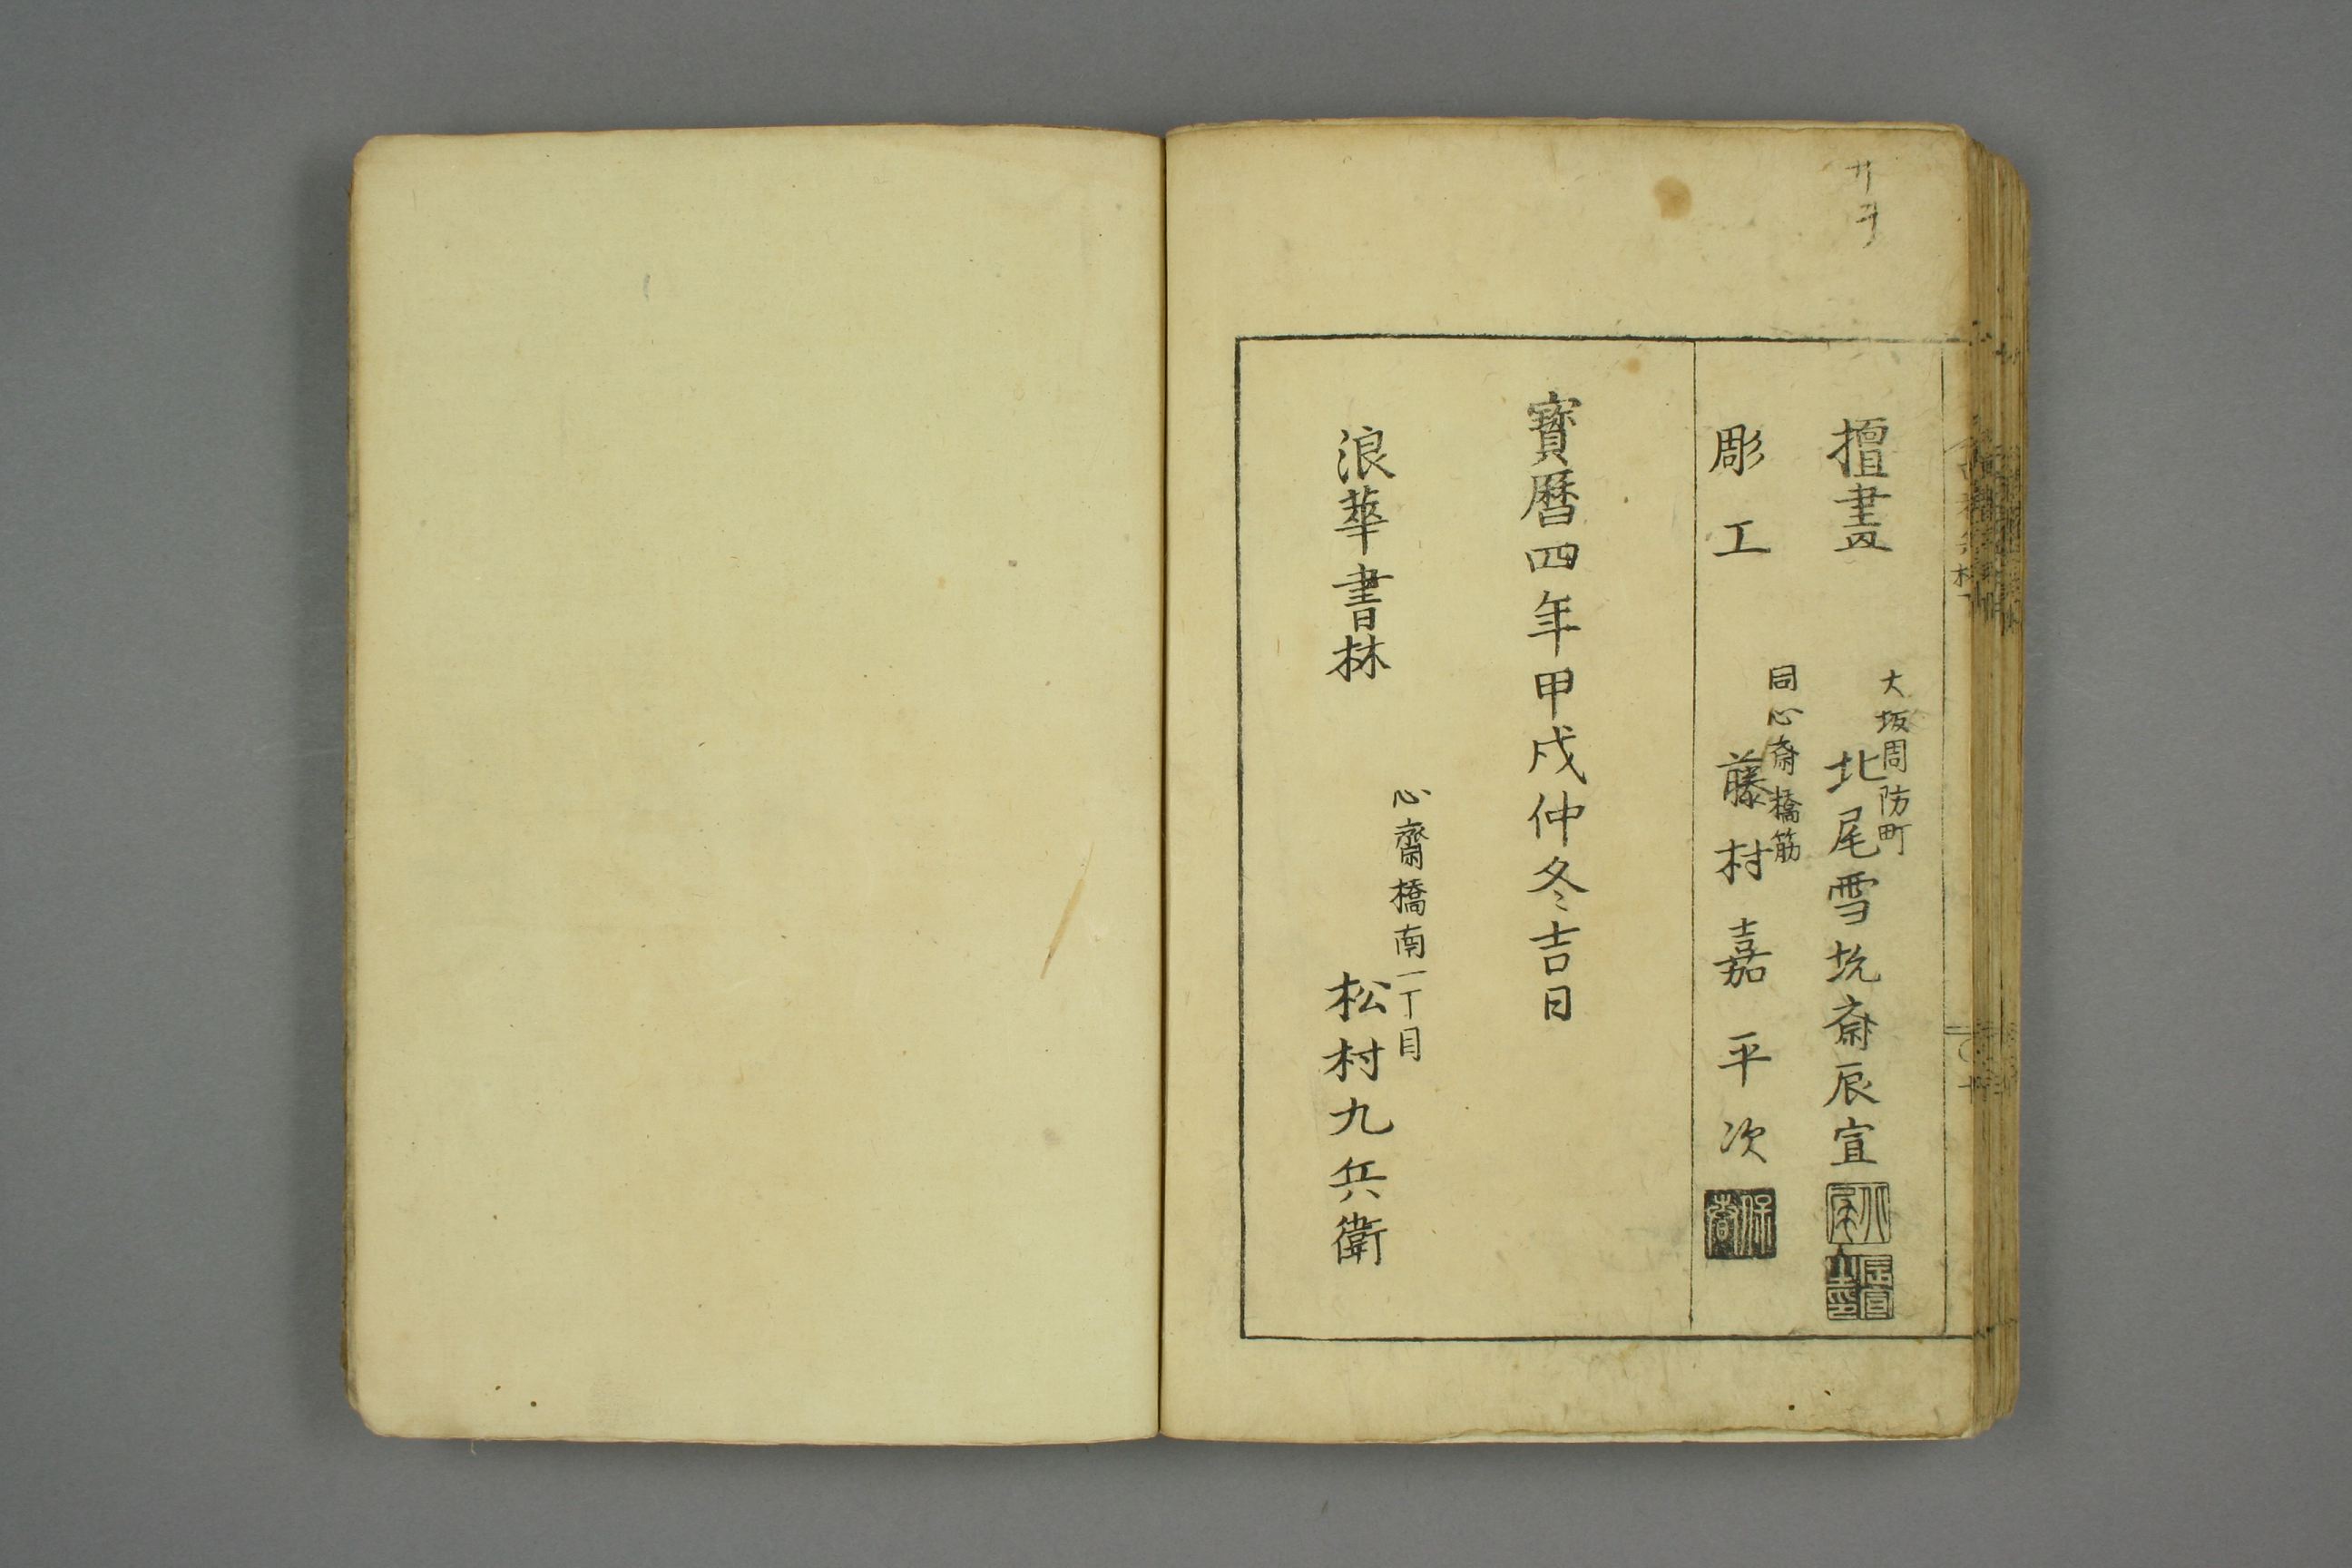 擅畫
大坂周防町
北尾雪坑斎辰宣
彫工
同心斎橋筋
藤村嘉平次
寳暦四年甲戌仲冬吉日
浪華書林
心齋橋南一丁目
松村九兵衛